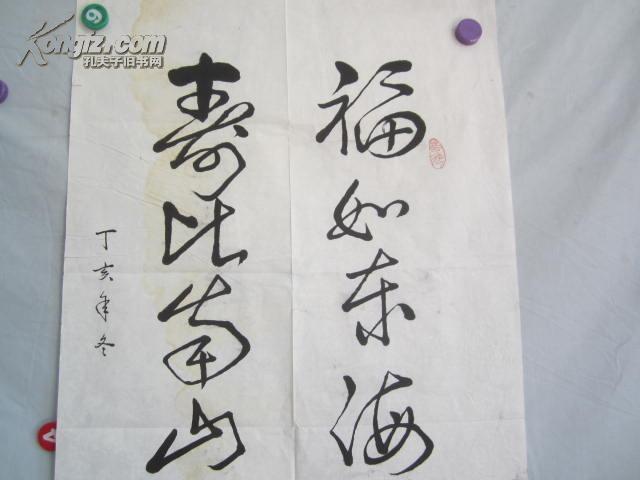 福如东海
寿比南山
丁亥年冬
Kongfz.com
孔夫子旧书网
9